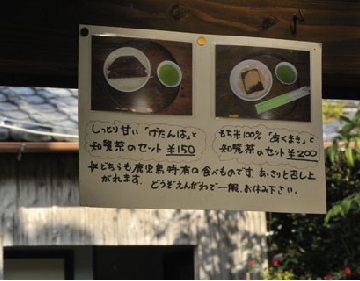 しっとり甘い「げたんは」と
知覧茶のセット ¥150
もち米100%「あくまき」と
知覧茶のセット ¥200
※どちらも鹿児島特有の食べものです。あさっと召し上
がれます。どうぞえんがわで一服、お休み下さい。